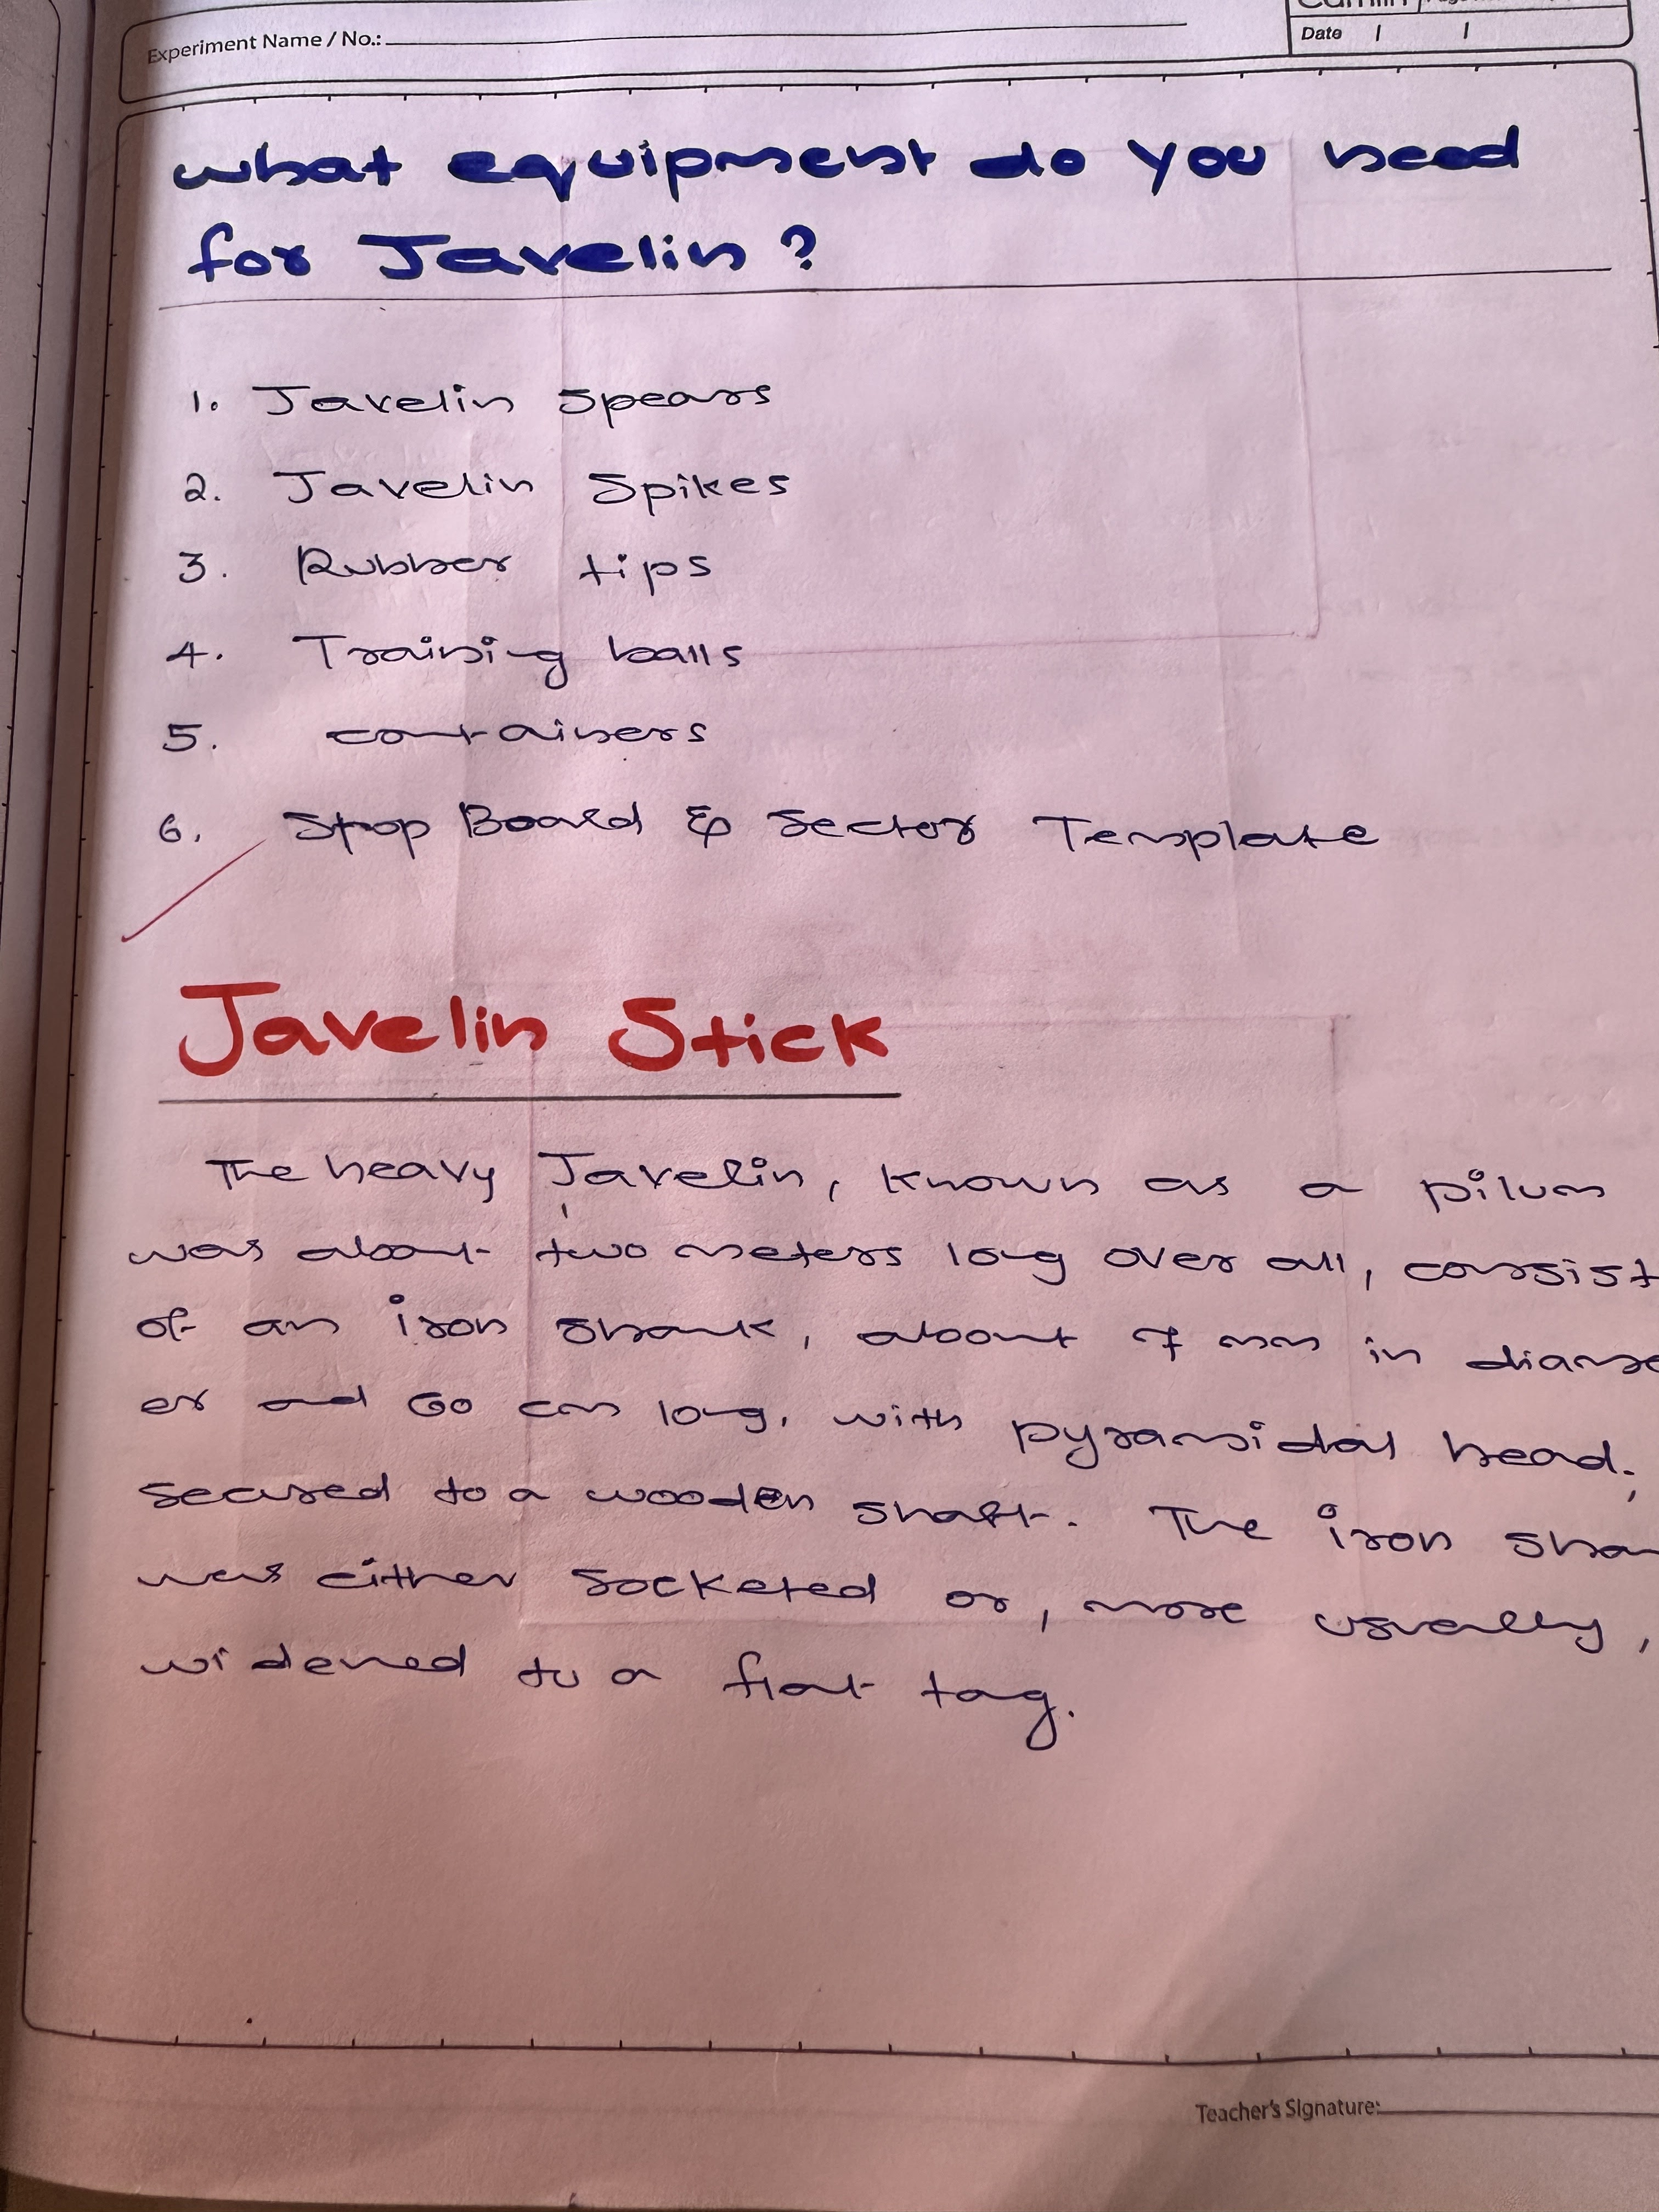 Experiment Name / No.:
Date / /
what equipment do you need
for Javelin ?
1. Javelin Spears
2. Javelin Spikes
3. Rubber tips
4. Training balls
5. containers
6. Stop Board & Sector Template
Javelin Stick
The heavy Javelin, known as a pilum
was about two meters long over all, consist
of an iron shank, about 7 mm in diame
er and 60 cm long, with pyramidal head,
secured to a wooden shaft. The iron sha
was either socketed or, more usually,
widened to a flat tag.
Teacher's Signature: